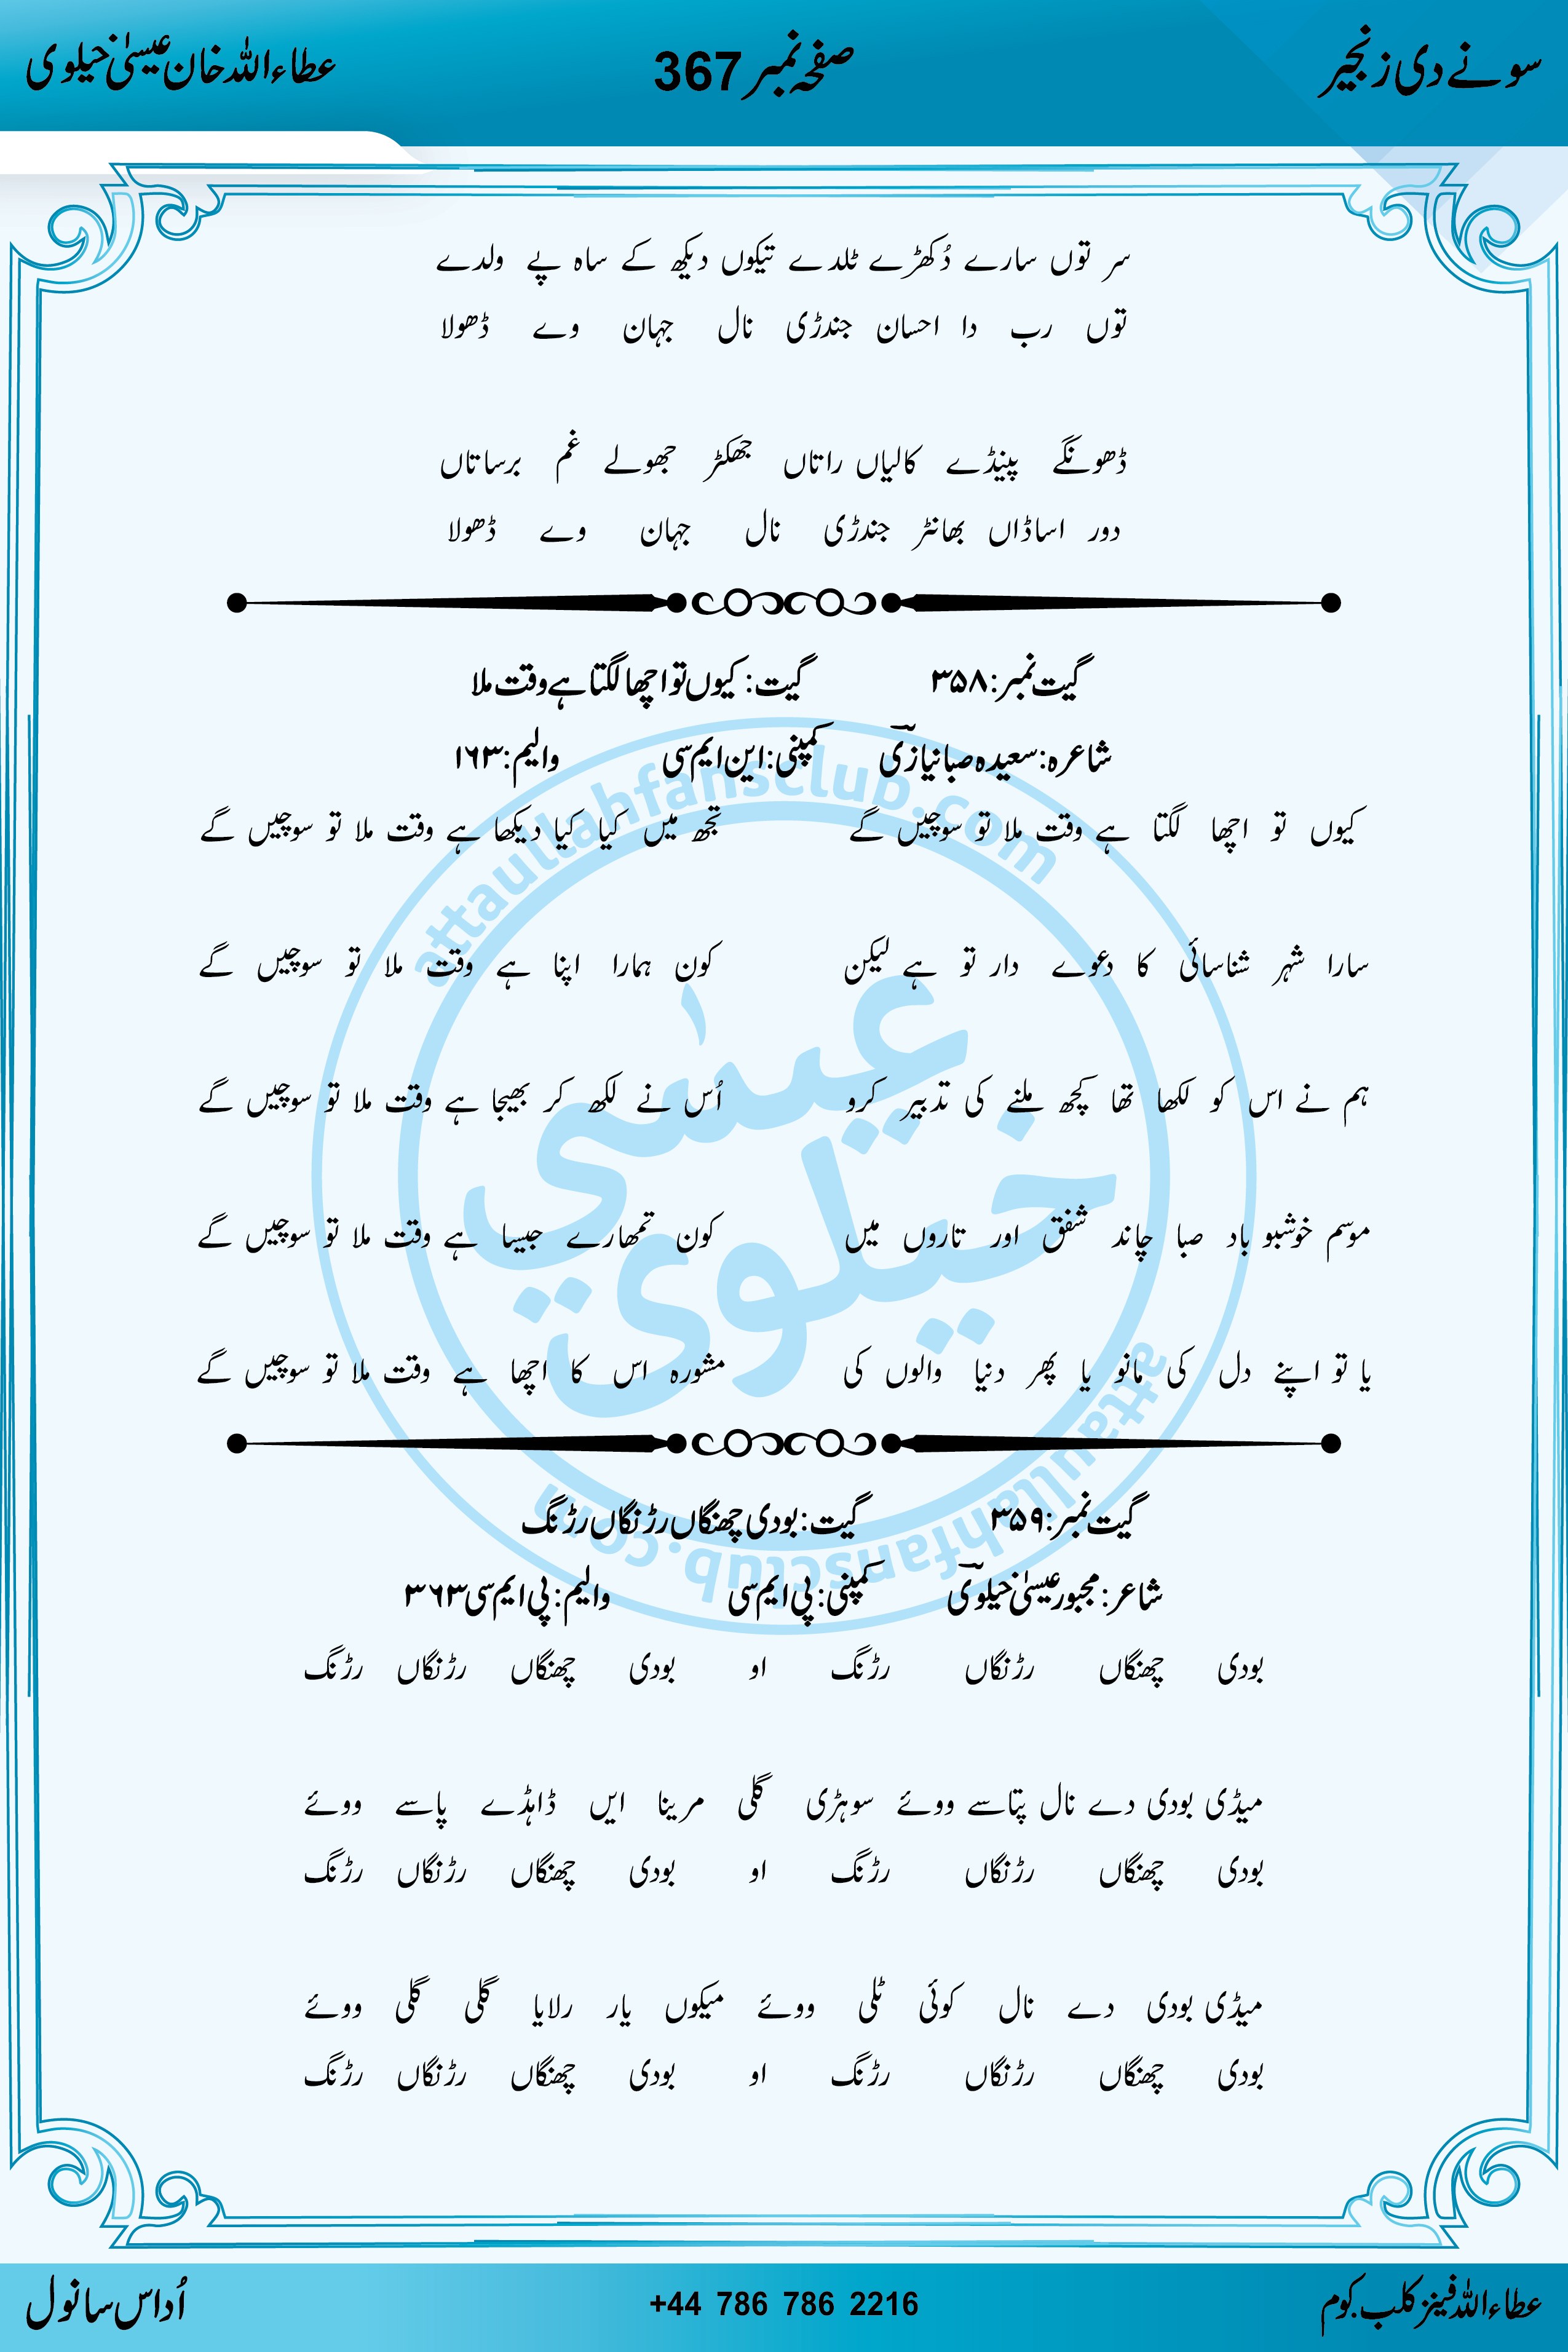 سونے دی زنجیر صفحہ نمبر 367 عطاءاللہ خان عیسیٰ خیلوی
سر توں سارے دُکھڑے ٹلدے تیکوں دیکھ کے ساہ پے ولدے
توں رب دا احسان جندڑی نال جہان وے ڈھولا
ڈھونگے پینڈے کالیاں راتاں جھکڑ جھولے غم برساتاں
دور اساڈاں بھانٹر جندڑی نال جہان وے ڈھولا
گیت نمبر: ۳۵۸ گیت: کیوں تو اچھا لگتا ہے وقت ملا
شاعرہ: سعیدہ صبا نیازیؔ کمپنی: این ایم سی والیم: ۱۶۳
کیوں تو اچھا لگتا ہے وقت ملا تو سوچیں گے تجھ میں کیا کیا دیکھا ہے وقت ملا تو سوچیں گے
سارا شہر شناسائی کا دعوے دار تو ہے لیکن کون ہمارا اپنا ہے وقت ملا تو سوچیں گے
ہم نے اس کو لکھا تھا کچھ ملنے کی تدبیر کرو اُس نے لکھ کر بھیجا ہے وقت ملا تو سوچیں گے
موسم خوشبو باد صبا چاند شفق اور تاروں میں کون تمھارے جیسا ہے وقت ملا تو سوچیں گے
یا تو اپنے دل کی مانو یا پھر دنیا والوں کی مشورہ اس کا اچھا ہے وقت ملا تو سوچیں گے
گیت نمبر: ۳۵۹ گیت: بودی چھنگاں رڑنگاں رڑنگ
شاعر: مجبور عیسیٰ خیلویؔ کمپنی: پی ایم سی والیم: پی ایم سی ۳۶۳
بودی چھنگاں رڑنگاں رڑنگ او بودی چھنگاں رڑنگاں رڑنگ
میڈی بودی دے نال پتاسے ووئے سوہڑی گلی مرینا ایں ڈاہڈے پاسے ووئے
بودی چھنگاں رڑنگاں رڑنگ او بودی چھنگاں رڑنگاں رڑنگ
میڈی بودی دے نال کوئی ٹلی ووئے میکوں یار رلایا گلی گلی ووئے
بودی چھنگاں رڑنگاں رڑنگ او بودی چھنگاں رڑنگاں رڑنگ
attaullahfansclub.com
عیسٰی
خیلوی
attaullahfansclub.com
عطاءاللہ فینز کلب.کوم +44 786 786 2216 اُداس سانول